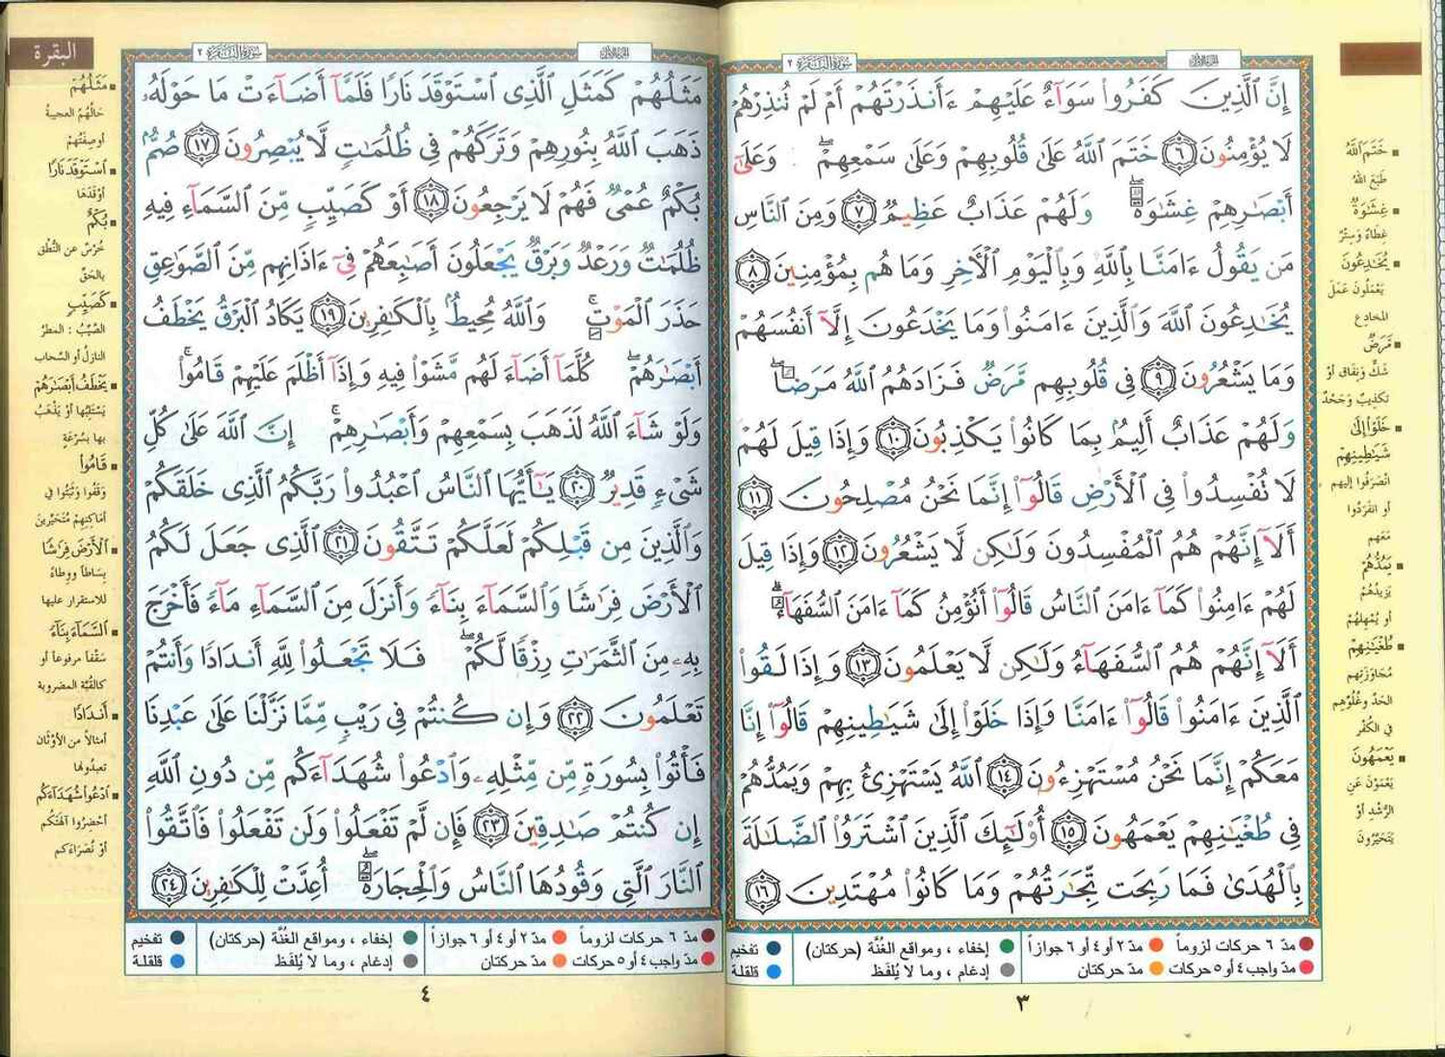 سورة البقرة ٢
الجزء الأول
إِنَّ ٱلَّذِينَ كَفَرُواْ سَوَآءٌ عَلَيْهِمْ ءَأَنذَرْتَهُمْ أَمْ لَمْ تُنذِرْهُمْ
لَا يُؤْمِنُونَ ٦ خَتَمَ ٱللَّهُ عَلَىٰ قُلُوبِهِمْ وَعَلَىٰ سَمْعِهِمْ ۖ وَعَلَىٰٓ
أَبْصَٰرِهِمْ غِشَٰوَةٌ ۖ وَلَهُمْ عَذَابٌ عَظِيمٌ ٧ وَمِنَ ٱلنَّاسِ
مَن يَقُولُ ءَامَنَّا بِٱللَّهِ وَبِٱلْيَوْمِ ٱلْأَخِرِ وَمَا هُم بِمُؤْمِنِينَ ٨
يُخَٰدِعُونَ ٱللَّهَ وَٱلَّذِينَ ءَامَنُواْ وَمَا يَخْدَعُونَ إِلَّآ أَنفُسَهُمْ
وَمَا يَشْعُرُونَ ٩ فِى قُلُوبِهِم مَّرَضٌ فَزَادَهُمُ ٱللَّهُ مَرَضًا ۖ
وَلَهُمْ عَذَابٌ أَلِيمٌۢ بِمَا كَانُواْ يَكْذِبُونَ ١٠ وَإِذَا قِيلَ لَهُمْ
لَا تُفْسِدُواْ فِى ٱلْأَرْضِ قَالُوٓاْ إِنَّمَا نَحْنُ مُصْلِحُونَ ١١
أَلَآ إِنَّهُمْ هُمُ ٱلْمُفْسِدُونَ وَلَٰكِن لَّا يَشْعُرُونَ ١٢ وَإِذَا قِيلَ
لَهُمْ ءَامِنُواْ كَمَآ ءَامَنَ ٱلنَّاسُ قَالُوٓاْ أَنُؤْمِنُ كَمَآ ءَامَنَ ٱلسُّفَهَآءُ ۗ
أَلَآ إِنَّهُمْ هُمُ ٱلسُّفَهَآءُ وَلَٰكِن لَّا يَعْلَمُونَ ١٣ وَإِذَا لَقُواْ
ٱلَّذِينَ ءَامَنُواْ قَالُوٓاْ ءَامَنَّا وَإِذَا خَلَوْاْ إِلَىٰ شَيَٰطِينِهِمْ قَالُوٓاْ إِنَّا
مَعَكُمْ إِنَّمَا نَحْنُ مُسْتَهْزِءُونَ ١٤ ٱللَّهُ يَسْتَهْزِئُ بِهِمْ وَيَمُدُّهُمْ
فِى طُغْيَٰنِهِمْ يَعْمَهُونَ ١٥ أُوْلَٰٓئِكَ ٱلَّذِينَ ٱشْتَرَوُاْ ٱلضَّلَٰلَةَ
بِٱلْهُدَىٰ فَمَا رَبِحَت تِّجَٰرَتُهُمْ وَمَا كَانُواْ مُهْتَدِينَ ١٦
خَتَمَ ٱللَّهُ
طَبَعَ اللهُ
غِشَٰوَةٌ
غِطَاءٌ وَسِتْرٌ
يُخَٰدِعُونَ
يَعْمَلُونَ عَمَلَ
المخادِع
مَرَضٌ
شَكٌّ وَنِفَاق أوْ
تكذِيبٌ وَجَحْدٌ
خَلَوْاْ إِلَىٰ
شَيَٰطِينِهِمْ
انْصَرَفُوا إليهِم
أو انفَرَدُوا
مَعَهم
يَمُدُّهُمْ
يَزِيدُهُمْ
أو يُمْهِلُهُمْ
طُغْيَٰنِهِمْ
مُجَاوَزَتِهِم
الحَدّ وغُلُوِّهِم
في الكُفْر
يَعْمَهُونَ
يَعْمَوْنَ عَنِ
الرُّشْد أوْ
يَتَحَيَّرُونَ
مدّ ٦ حركات لزوماً مدّ ٢ أو ٤ أو ٦ جوازاً إخفاء ، ومواقع الغُنَّة (حركتان) تفخيم
مدّ واجب ٤ أو ٥ حركات مدّ حركتان إدغام ، وما لا يُلفَظ قلقلة
٣
البقرة
سورة البقرة ٢
الجزء الأول
مَثَلُهُمْ كَمَثَلِ ٱلَّذِى ٱسْتَوْقَدَ نَارًا فَلَمَّآ أَضَآءَتْ مَا حَوْلَهُۥ
ذَهَبَ ٱللَّهُ بِنُورِهِمْ وَتَرَكَهُمْ فِى ظُلُمَٰتٍ لَّا يُبْصِرُونَ ١٧ صُمٌّۢ
بُكْمٌ عُمْىٌ فَهُمْ لَا يَرْجِعُونَ ١٨ أَوْ كَصَيِّبٍ مِّنَ ٱلسَّمَآءِ فِيهِ
ظُلُمَٰتٌ وَرَعْدٌ وَبَرْقٌ يَجْعَلُونَ أَصَٰبِعَهُمْ فِىٓ ءَاذَانِهِم مِّنَ ٱلصَّوَٰعِقِ
حَذَرَ ٱلْمَوْتِ ۚ وَٱللَّهُ مُحِيطٌۢ بِٱلْكَٰفِرِينَ ١٩ يَكَادُ ٱلْبَرْقُ يَخْطَفُ
أَبْصَٰرَهُمْ ۖ كُلَّمَآ أَضَآءَ لَهُم مَّشَوْاْ فِيهِ وَإِذَآ أَظْلَمَ عَلَيْهِمْ قَامُواْ ۚ
وَلَوْ شَآءَ ٱللَّهُ لَذَهَبَ بِسَمْعِهِمْ وَأَبْصَٰرِهِمْ ۚ إِنَّ ٱللَّهَ عَلَىٰ كُلِّ
شَىْءٍ قَدِيرٌ ٢٠ يَٰٓأَيُّهَا ٱلنَّاسُ ٱعْبُدُواْ رَبَّكُمُ ٱلَّذِى خَلَقَكُمْ
وَٱلَّذِينَ مِن قَبْلِكُمْ لَعَلَّكُمْ تَتَّقُونَ ٢١ ٱلَّذِى جَعَلَ لَكُمُ
ٱلْأَرْضَ فِرَٰشًا وَٱلسَّمَآءَ بِنَآءً وَأَنزَلَ مِنَ ٱلسَّمَآءِ مَآءً فَأَخْرَجَ
بِهِۦ مِنَ ٱلثَّمَرَٰتِ رِزْقًا لَّكُمْ ۖ فَلَا تَجْعَلُواْ لِلَّهِ أَندَادًا وَأَنتُمْ
تَعْلَمُونَ ٢٢ وَإِن كُنتُمْ فِى رَيْبٍ مِّمَّا نَزَّلْنَا عَلَىٰ عَبْدِنَا
فَأْتُواْ بِسُورَةٍ مِّن مِّثْلِهِۦ وَٱدْعُواْ شُهَدَآءَكُم مِّن دُونِ ٱللَّهِ
إِن كُنتُمْ صَٰدِقِينَ ٢٣ فَإِن لَّمْ تَفْعَلُواْ وَلَن تَفْعَلُواْ فَٱتَّقُواْ
ٱلنَّارَ ٱلَّتِى وَقُودُهَا ٱلنَّاسُ وَٱلْحِجَارَةُ ۖ أُعِدَّتْ لِلْكَٰفِرِينَ ٢٤
مَثَلُهُمْ
حَالُهُمُ العجيبةُ
أو صِفَتُهُمْ
ٱسْتَوْقَدَ نَارًا
أوْقَدَهَا
بُكْمٌ
خُرْسٌ عن النُّطْق
بالحَقّ
كَصَيِّبٍ
الصّيّبُ : المطرُ
النازلُ أو السَّحاب
يَخْطَفُ أَبْصَٰرَهُمْ
يَسْتَلِبُها أوْ يَذْهَبُ
بها بسُرْعَةٍ
قَامُواْ
وَقَفُوا وَثَبَتُوا في
أماكِنِهِمْ مُتَحَيِّرِينَ
ٱلْأَرْضَ فِرَٰشًا
بِسَاطاً وَوِطَاءً
للاستقرار عليها
ٱلسَّمَآءَ بِنَآءً
سَقْفاً مرفوعاً أو
كالقُبَّة المضروبة
أَندَادًا
أمثالاً من الأوْثَان
تعبدُونها
ٱدْعُواْ شُهَدَآءَكُم
أحْضِرُوا آلهتَكُم
أوْ نُصَرَاءَكم
مدّ ٦ حركات لزوماً مدّ ٢ أو ٤ أو ٦ جوازاً إخفاء ، ومواقع الغُنَّة (حركتان) تفخيم
مدّ واجب ٤ أو ٥ حركات مدّ حركتان إدغام ، وما لا يُلفَظ قلقلة
٤